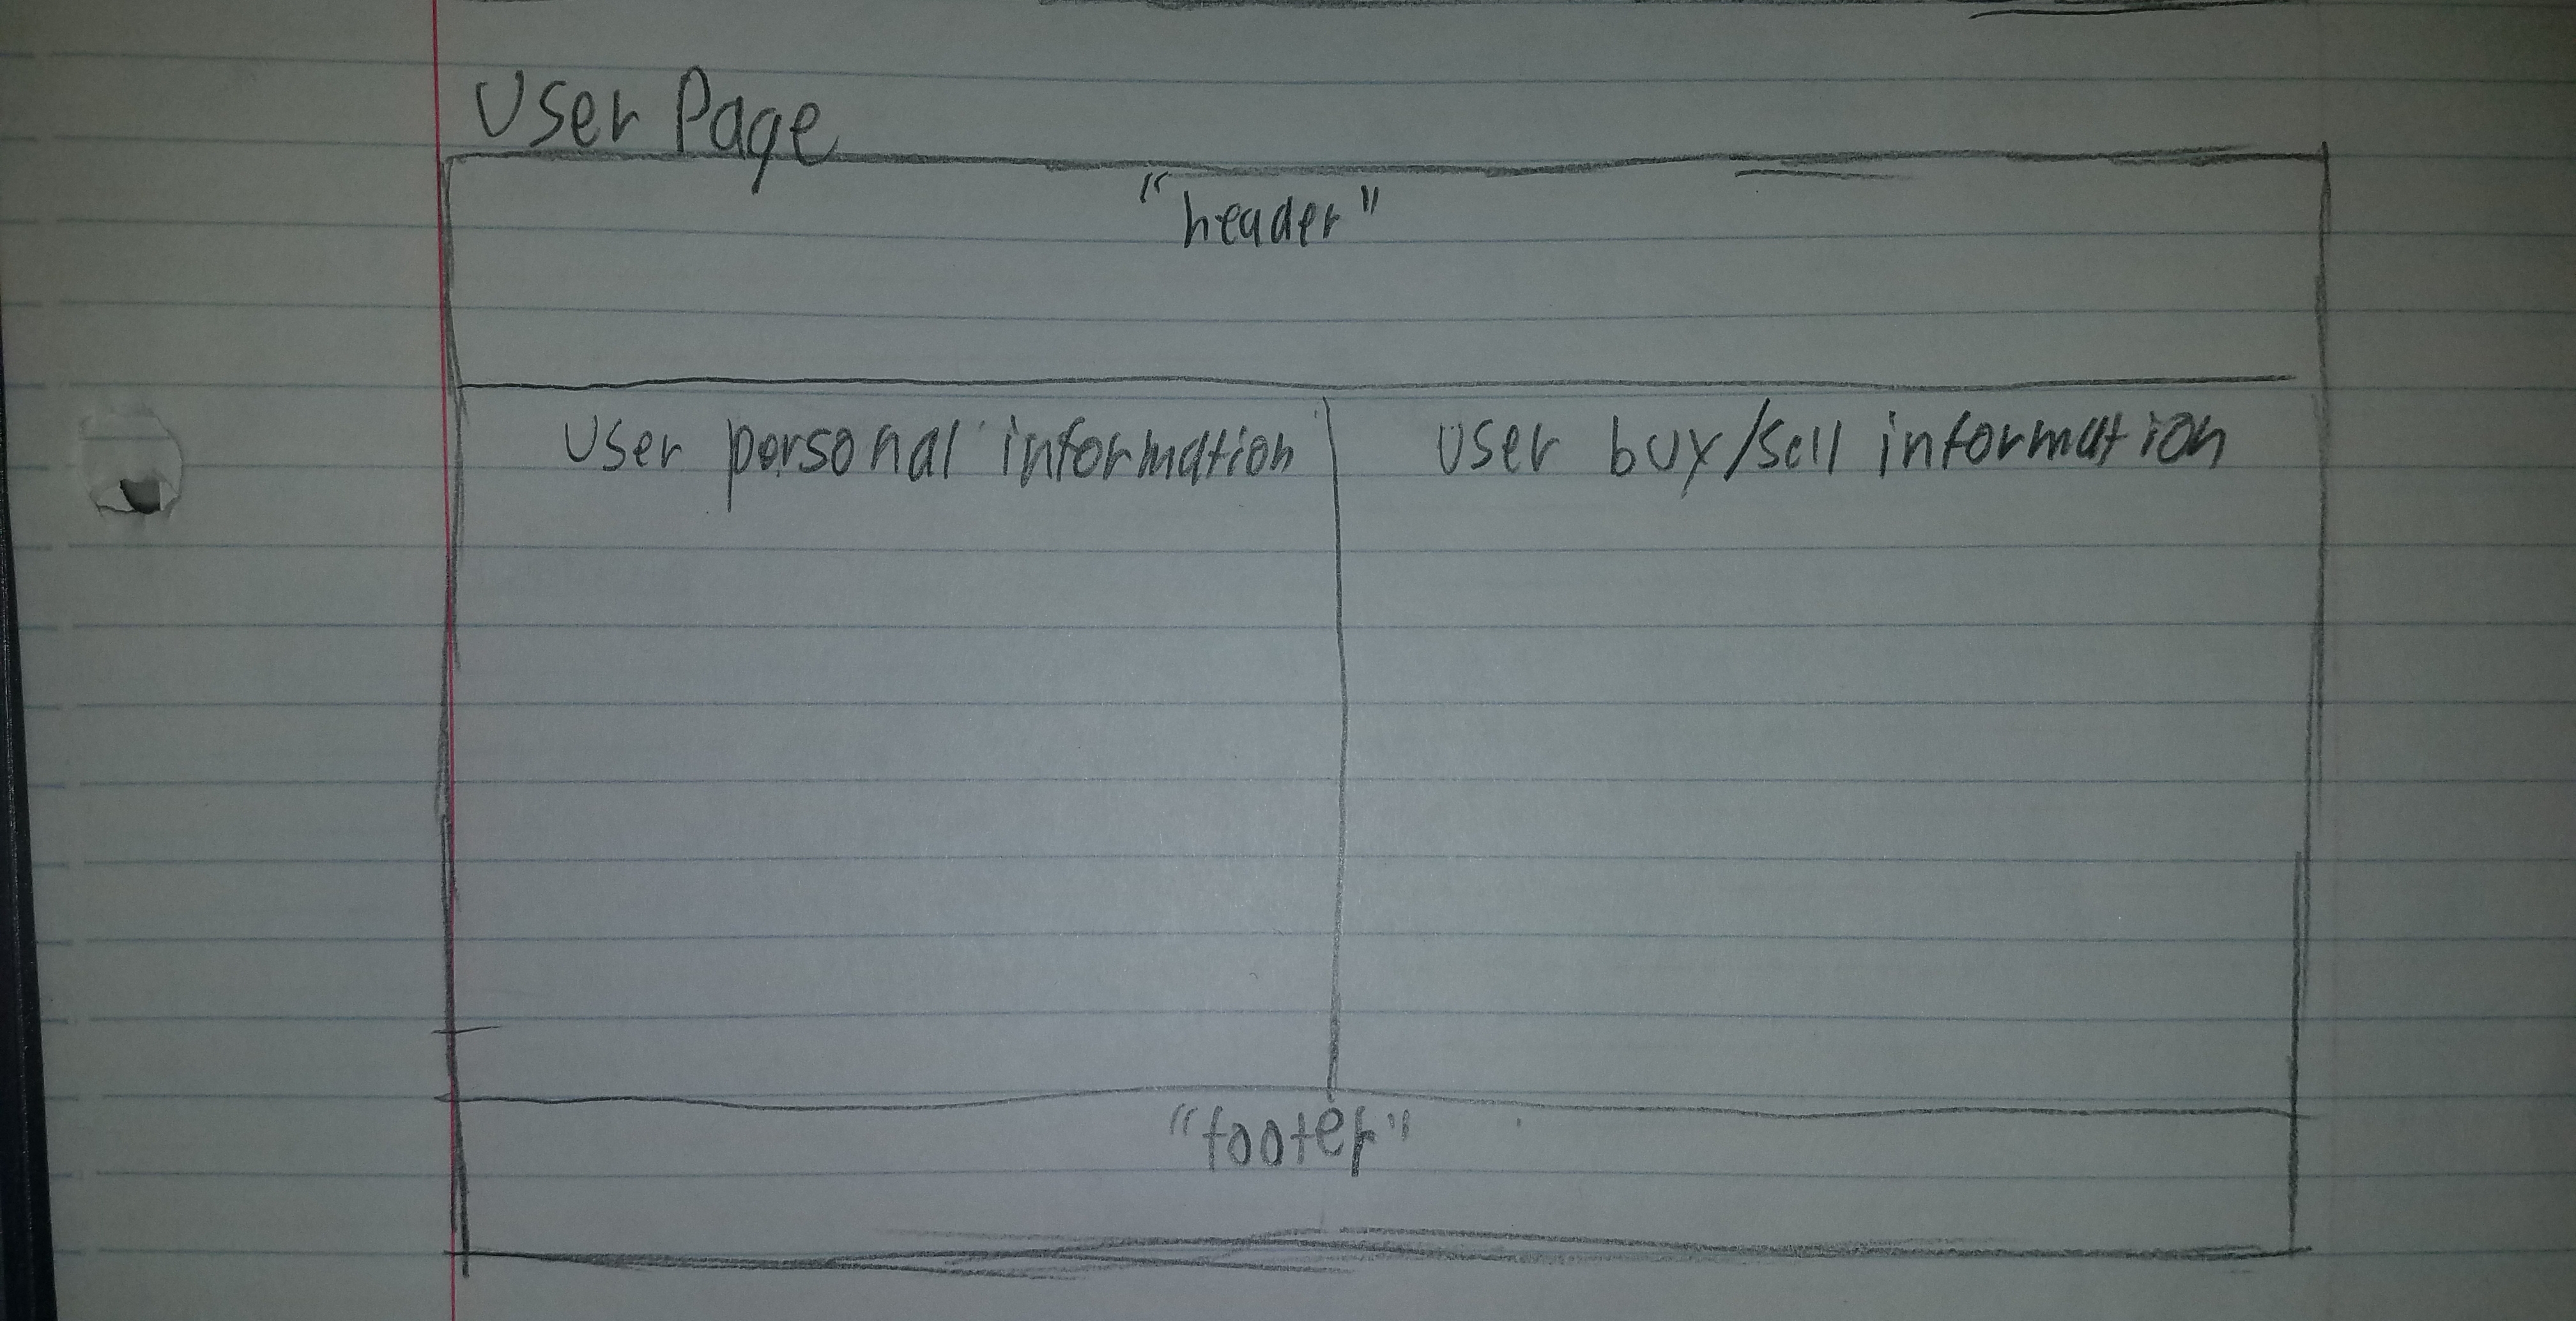 User Page
"header"
User personal information
User buy/sell information
"footer"